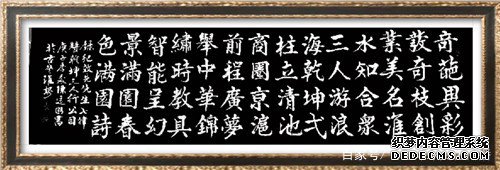 奇葩異彩
發奇枝創
業美名滙
水知合衆
三人游浪
海乾坤弌
柱立清池
商圈京滬
前程廣夢
舉中華錦
繡時教具
智能呈幻
景滿園春
色滿園詩
先生七律
乾坤三人行
庚子年
百家号/
织梦内容管理系统
DEDECMS.COM